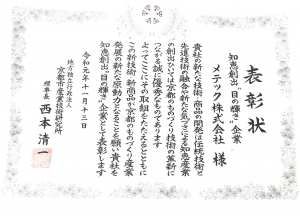 表彰状
知恵創出“目の輝き”企業
メテック株式会社 様
貴社の新たな技術・商品の開発は伝統技術と
先進技術の融合や新たな気づきによる知恵産業
の創出ひいては京都のものづくり技術の革新に
つながる誠に優秀なものであります
よってここにその取組をたたえるとともに
この新技術・新商品が京都のものづくり産業
発展の新たな原動力となることを願い貴社を
知恵創出“目の輝き”企業として表彰します
令和元年十一月十三日
地方独立行政法人
京都市産業技術研究所
理事長 西本清一